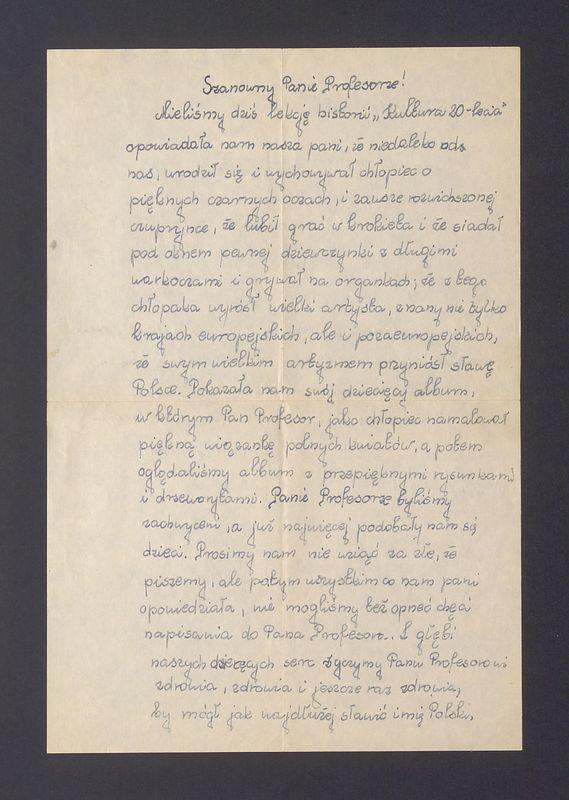 Szanowny Panie Profesorze!
Mieliśmy dziś lekcję historii „Kultura 20-lecia"
opowiadała nam nasza pani, że niedaleko od
nas, urodził się i wychowywał chłopiec o
pięknych czarnych oczach, i zawsze rozwichrzonej
czuprynce, że lubił grać w krokieta i że siadał
pod oknem pewnej dziewczynki z długimi
warkoczami i grywał na organkach; że z tego
chłopaka wyrósł wielki artysta, znany nie tylko
krajach europejskich, ale i pozaeuropejskich,
że swym wielkim artyzmem przyniósł sławę
Polsce. Pokazała nam swój dziecięcy album,
w którym Pan Profesor, jako chłopiec namalował
piękną wiązankę polnych kwiatów, a potem
oglądaliśmy album z przepięknymi rysunkami
i drzeworytami. Panie Profesorze byliśmy
zachwyceni, a już najwięcej podobały nam się
dzieci. Prosimy nam nie wziąć za złe, że
piszemy, ale po tym wszystkim co nam pani
opowiedziała, nie mogliśmy też oprzeć chęci
napisania do Pana Profesora. Z głębi
naszych dziecięcych serc życzymy Panu Profesorowi
zdrowia, zdrowia i jeszcze raz zdrowia,
by mógł jak najdłużej sławić imię Polski,